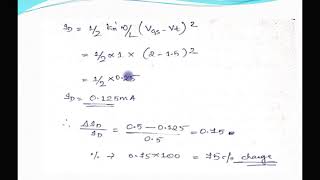 ID = 1/2 kn' W/L (Vgs - Vt)²
= 1/2 x 1 x (2 - 1.5)²
= 1/2 x 0.25
ID = 0.125mA
∴ ΔID/ID = 0.5 - 0.125/0.5 = 0.75
% → 0.75 x 100 = 75% change